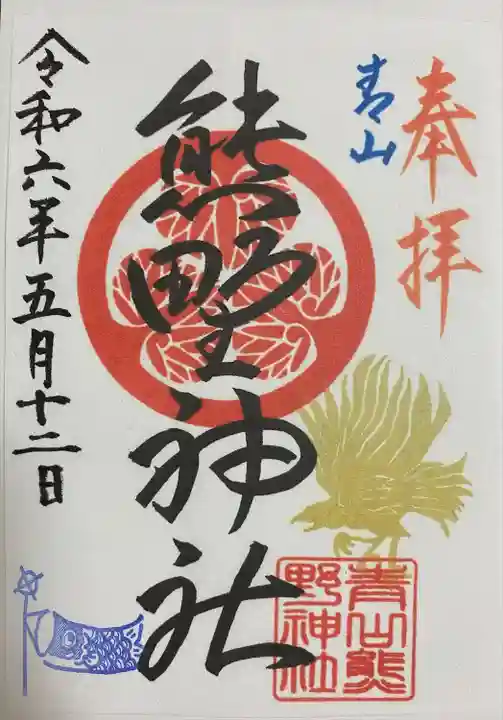 奉拝
青山
熊野神社
令和六年五月十二日
青山熊
野神社